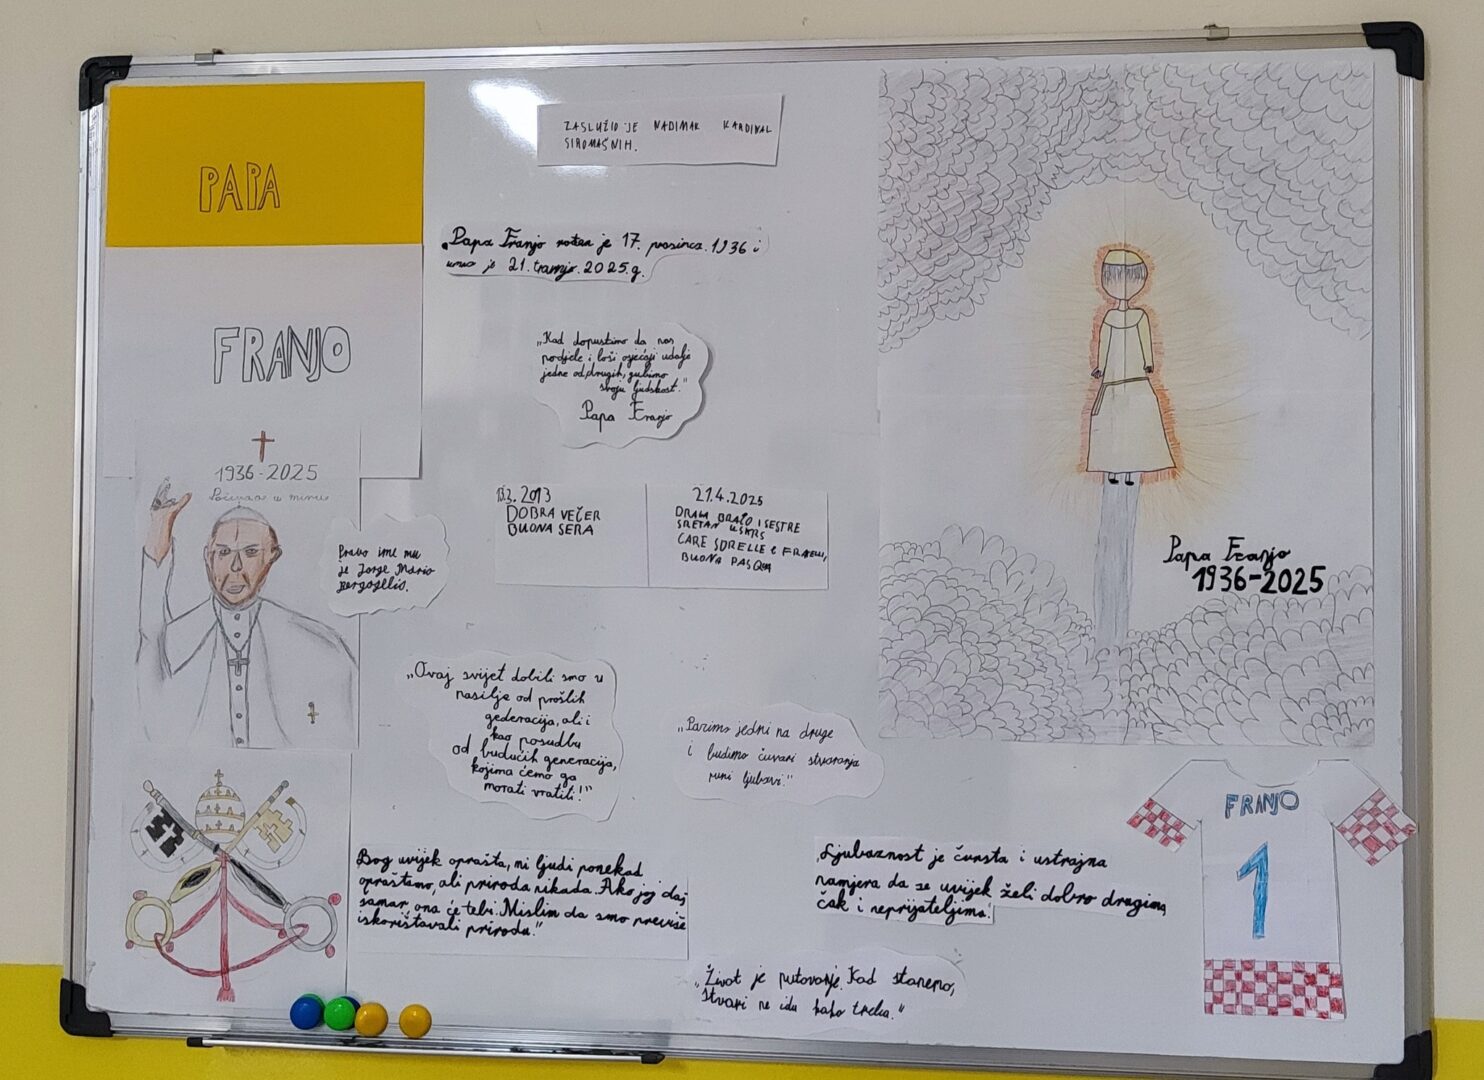 PAPA
FRANJO
1936-2025
Počivao u miru
ZASLUŽIO JE NADIMAK KARDINAL
SIROMAŠNIH.
„Papa Franjo rođen je 17. prosinca. 1936 i
umro je 21. travnja. 2025.g.
„Kad dopustimo da nas
podjele i loši osjećaji udalje
jedne od drugih, gubimo
svoju ljudskost."
Papa Franjo
2013
DOBRA VEČER
BUONA SERA
21.4.2025
DRAGA BRAĆO I SESTRE
SRETAN USKRS
CARE SORELLE E FRATELLI,
BUONA PASQUA
Pravo ime mu
je Jorge Mario
Bergoglio.
„Ovaj svijet dobili smo u
nasilje od prošlih
gederacija, ali i
kao posudbu
od budućih generacija,
kojima ćemo ga
morati vratiti!"
„Pazimo jedni na druge
i budimo čuvari stvaranja
puni ljubavi."
Papa Franjo
1936-2025
Bog uvijek oprašta, mi ljudi ponekad
opraštamo, ali priroda nikada. Ako joj daš
šamar, ona će tebi. Mislim da smo previše
iskorištavali prirodu."
Ljubaznost je čvrsta i ustrajna
namjera da se uvijek želi dobro drugima,
čak i neprijateljima.
„Život je putovanje. Kad stanemo,
stvari ne idu kako treba."
FRANJO
1